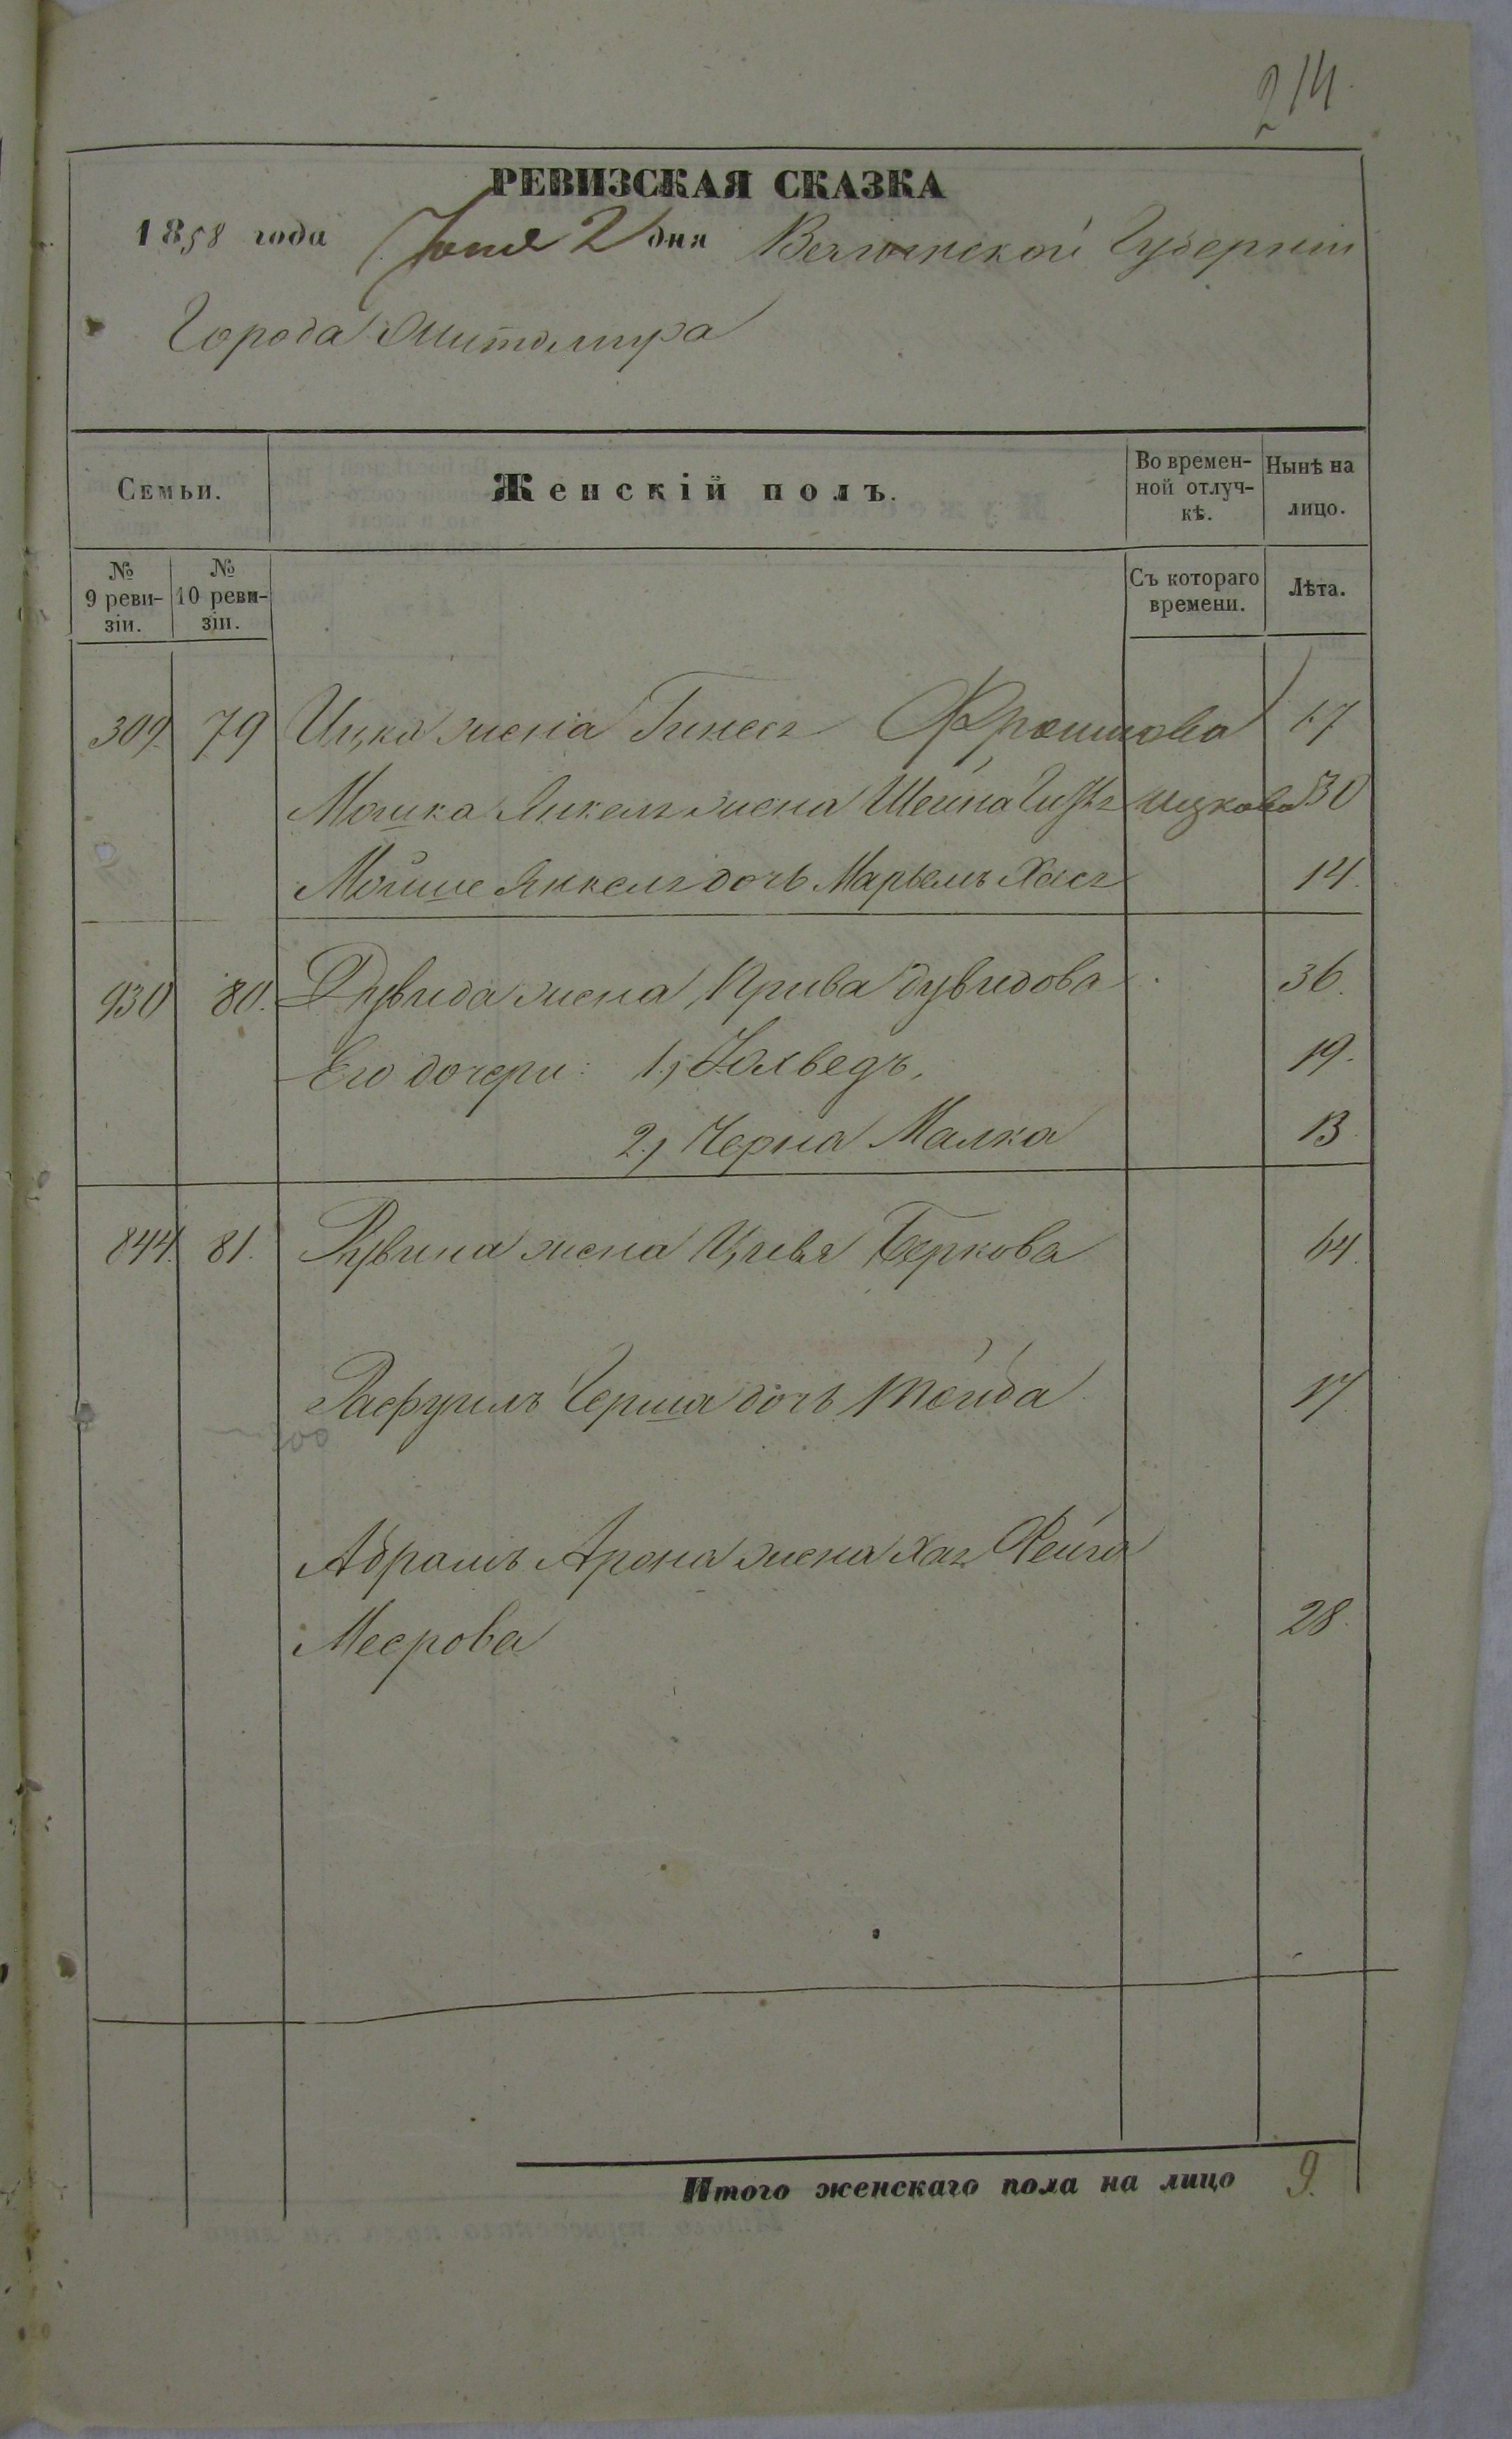 214.
РЕВИЗСКАЯ СКАЗКА
1858 года Юня 2 дня Волынской Губерніи
Города Житомира
Семьи.
Женскій полъ.
Во времен-
ной отлуч-
кѣ.
Нынѣ на
лицо.
№
9 реви-
зіи.
№
10 реви-
зіи.
Съ котораго
времени.
Лѣта.
309 79 Ицка жена Гинеся Фроимова 17
Мошка Янкеля жена Шейна Ицкова 30
Мойше Янкеля дочь Марьемъ Хася 14.
930 80. Дувида жена Крива Дувидова 36.
Его дочери: 1, Юхведъ, 19.
2, Черна Малка 13
844 81. Рувина жена Цивя Беркова 64
Герша дочь 17
Абрамъ Арона жена Хая Фейга
Меерова 28.
Итого женскаго пола на лицо 9.